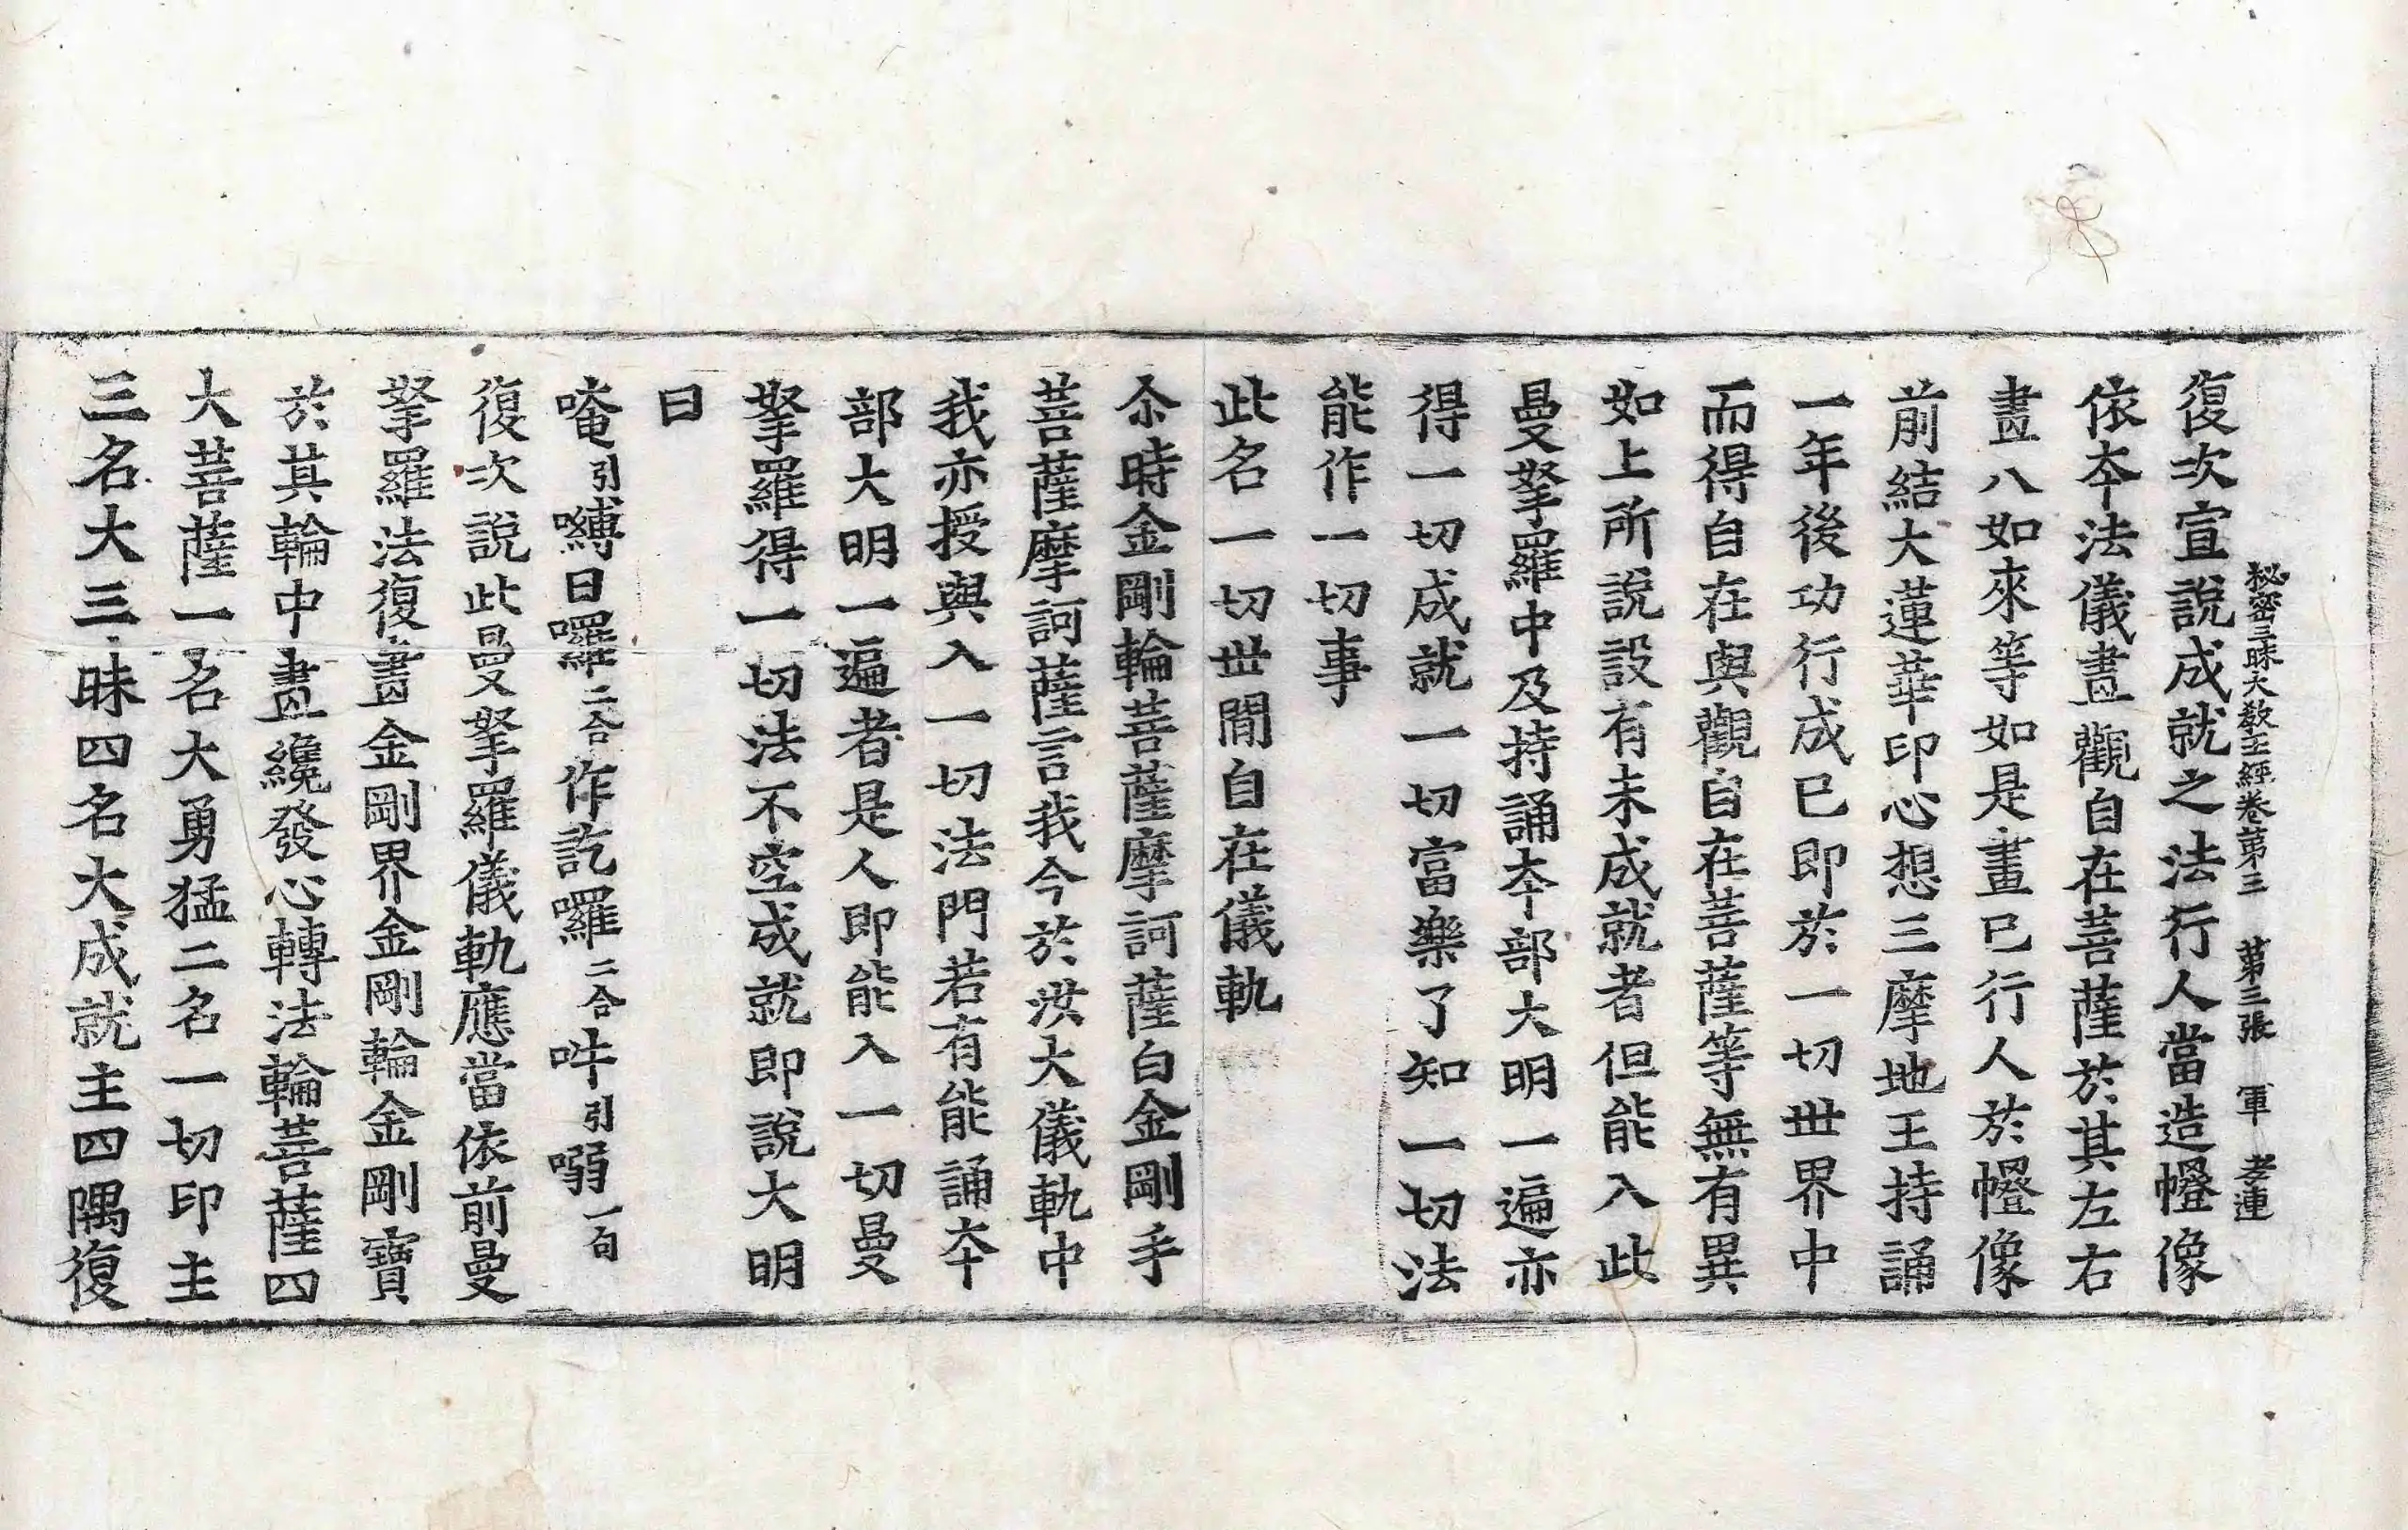 秘密三昧大敎王經卷第三　第三張　軍　孝連
復次宣說成就之法行人當造㡧像
依夲法儀畫觀自在菩薩於其左右
畫八如來等如是畫已行人於㡧像
前結大蓮華印心想三摩地王持誦
一年後功行成已即於一切世界中
而得自在與觀自在菩薩等無有異
如上所說設有未成就者但能入此
曼拏羅中及持誦夲部大明一遍亦
得一切成就一切富樂了知一切法
能作一切事
此名一切世間自在儀軌
尒時金剛輪菩薩摩訶薩白金剛手
菩薩摩訶薩言我今於汝大儀軌中
我亦授與入一切法門若有能誦夲
部大明一遍者是人即能入一切曼
拏羅得一切法不空成就即說大明
曰
唵引嚩日囉二合作訖囉二合吽引嗠一句
復次說此曼拏羅儀軌應當依前曼
拏羅法復畫金剛界金剛輪金剛寶
於其輪中畫纔發心轉法輪菩薩四
大菩薩一名大勇猛二名一切印主
三名大三昧四名大成就主四隅復